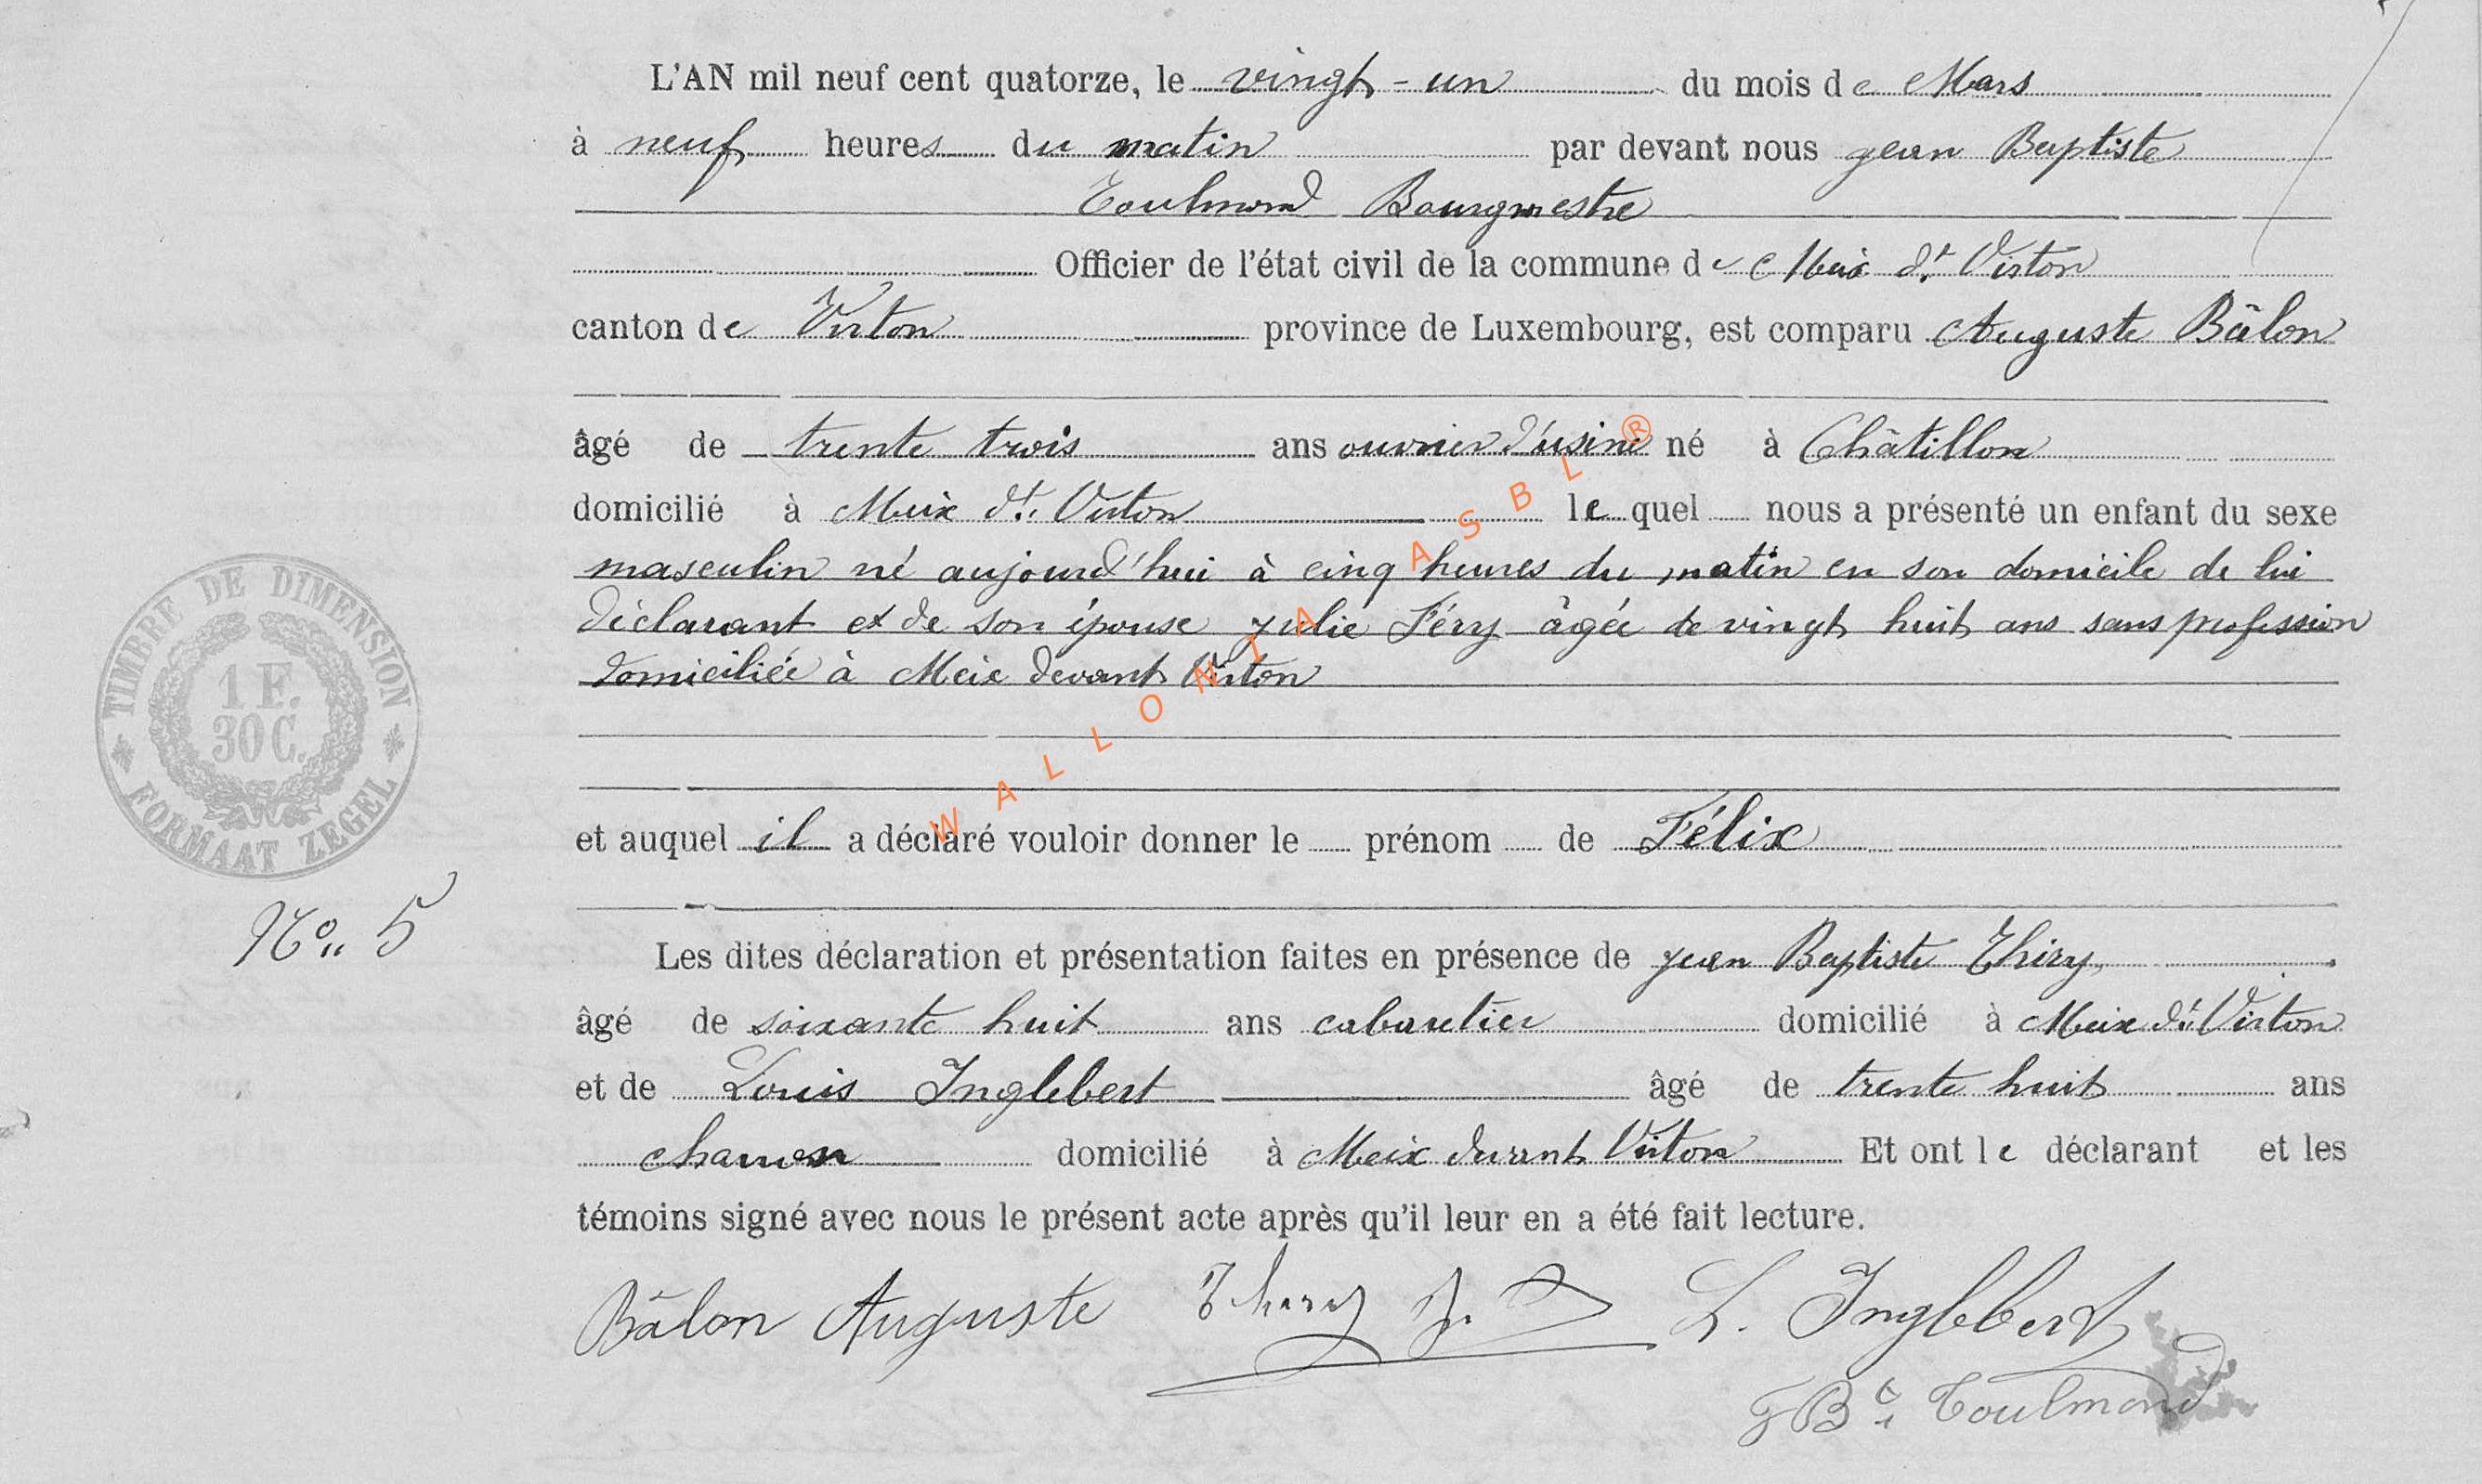 L'AN mil neuf cent quatorze, le vingt-un du mois de Mars
à neuf heures du matin par devant nous jean Baptiste
Toulmond Bourgmestre
Officier de l'état civil de la commune de Meix dt Virton
canton de Virton province de Luxembourg, est comparu Auguste Bâlon
âgé de trente trois ans ouvrier d'usine né à Châtillon
domicilié à Meix dt Virton le quel nous a présenté un enfant du sexe
masculin né aujourd'hui à cinq heures du matin en son domicile de lui
déclarant et de son épouse julie Féry âgée de vingt huit ans sans profession
domiciliée à Meix devant Virton
et auquel il a déclaré vouloir donner le prénom de Félix
Les dites déclaration et présentation faites en présence de jean Baptiste Thiry
âgé de soixante huit ans cabaretier domicilié à Meix dt Virton
et de Louis Inglebert âgé de trente huit ans
charron domicilié à Meix devant Virton Et ont le déclarant et les
témoins signé avec nous le présent acte après qu'il leur en a été fait lecture.
Bâlon Auguste Thiry J. L. Inglebert
JBte Toulmond
TIMBRE DE DIMENSION
1 F.
30 C.
FORMAAT ZEGEL
No 5
WALLONIA ASBL ®